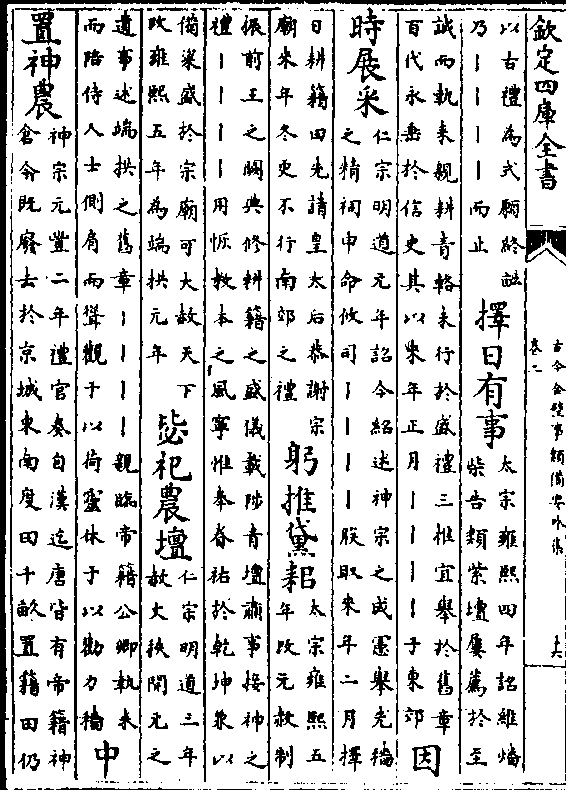 欽定四庫全書
古今合璧事類備要外集
卷二
十六
以古禮為式願終詘
乃｜｜｜｜而止
擇日有事
太宗雍熙四年詔維燔
柴告類紫壇屢薦於至
誠而執耒親耕青輅未行於盛禮三推宜舉於舊章
百代永垂於信史其以來年正月｜｜｜｜于東郊
因
時展采
仁宗明道元年詔今紹述神宗之成憲舉先穡
之精祠申命攸司｜｜｜｜朕取來年二月擇
日耕籍田先請皇太后恭謝宗
廟來年冬更不行南郊之禮
躬推黛耜
太宗雍熙五
年改元赦制
振前王之闕典修耕籍之盛儀載陟青壇肅事接神之
禮｜｜｜｜用恢敦本之風寧惟奉眷祐於乾坤眾以
備粢盛於宗廟可大赦天下
改雍熙五年為端拱元年
毖祀農壇
仁宗明道三年
赦文狹開元之
遺事述端拱之舊章｜｜｜｜親臨帝籍公卿執耒
而陪侍人士側肩而聳觀于以荷靈休于以勸力穡
中
置神農
神宗元豐二年禮官奏自漢迄唐皆有帝籍神
倉今既廢去於京城東南度田千畝置籍田仍